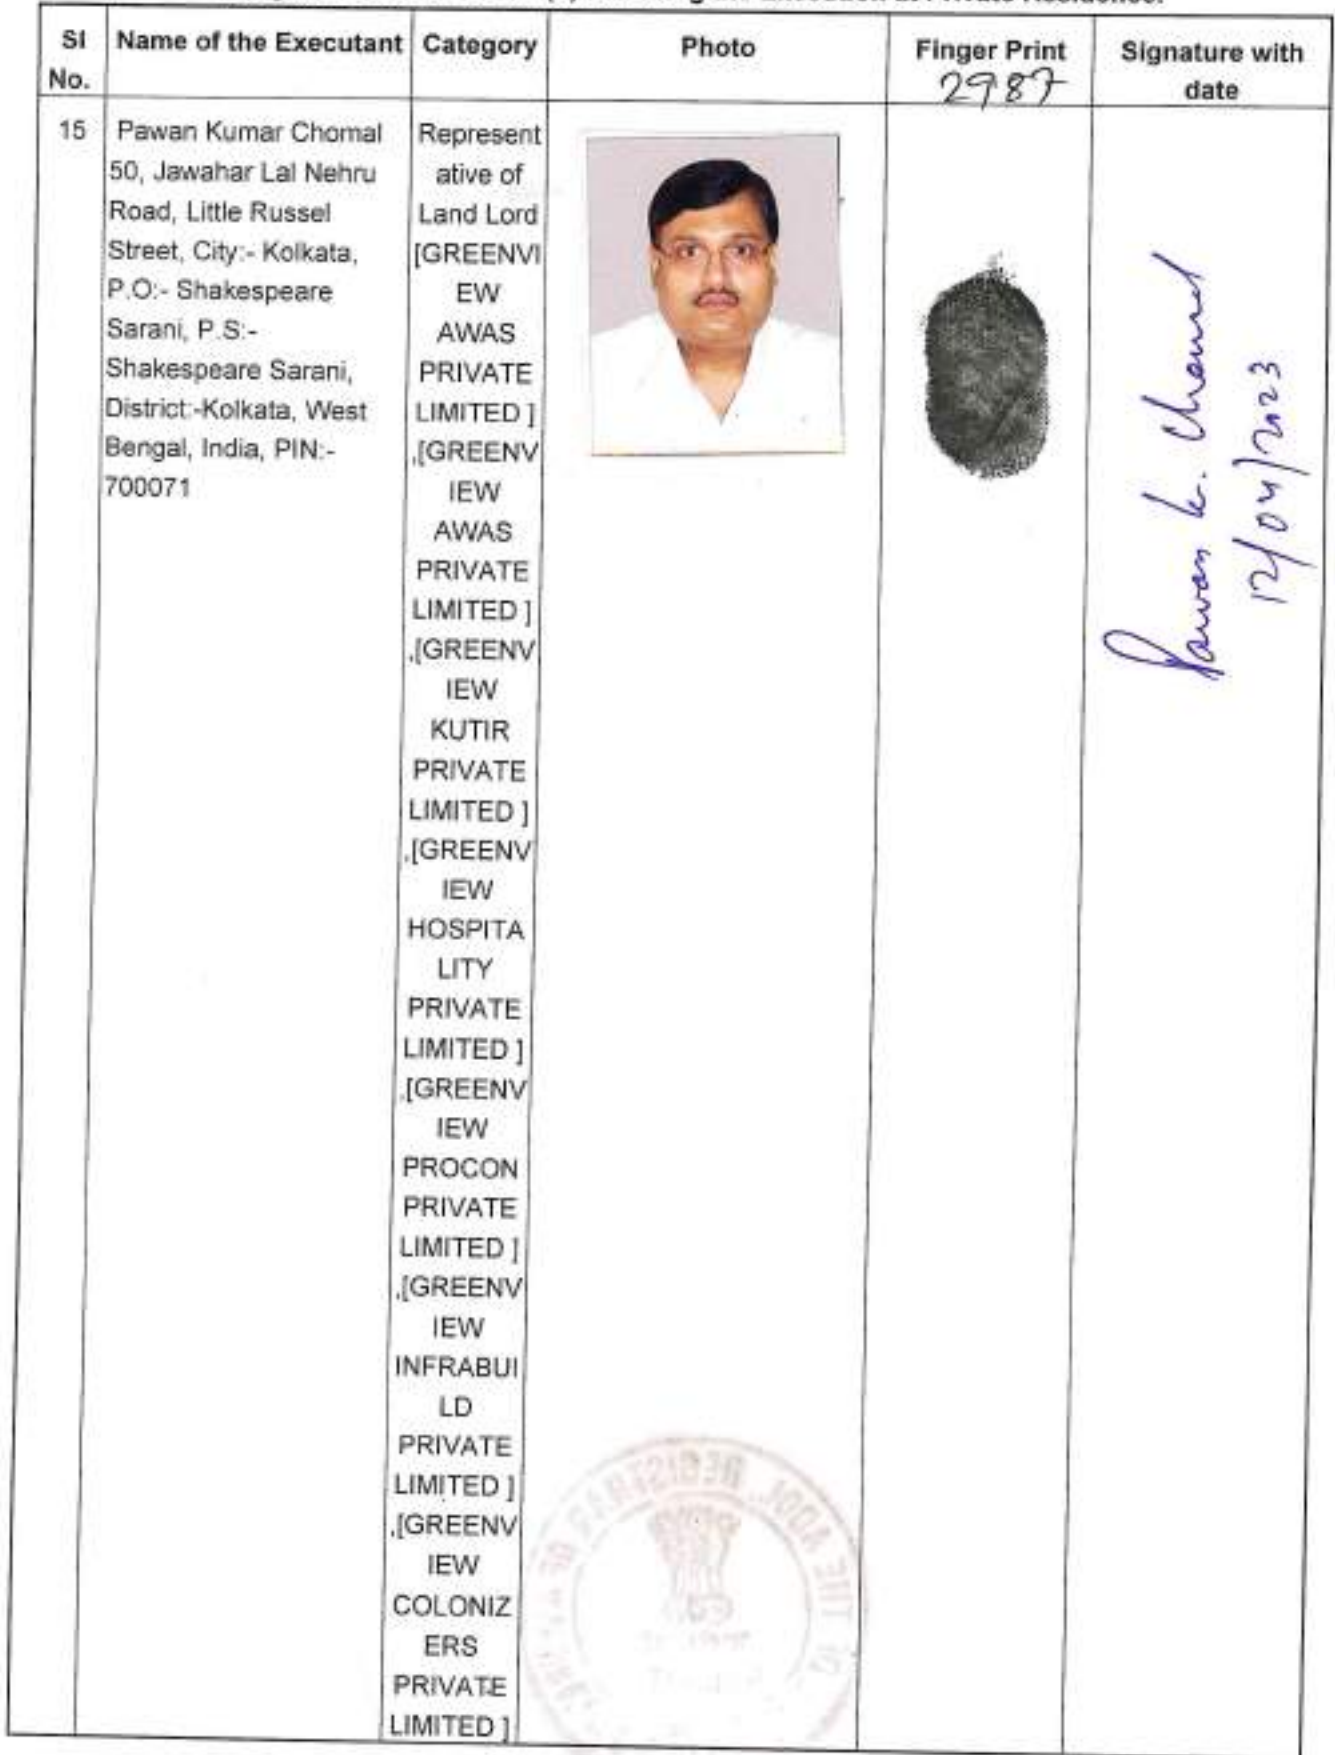 Sl No.
Name of the Executant
Category
Photo
Finger Print
2987
Signature with date
15
Pawan Kumar Chomal
50, Jawahar Lal Nehru
Road, Little Russel
Street, City:- Kolkata,
P.O:- Shakespeare
Sarani, P.S:-
Shakespeare Sarani,
District:-Kolkata, West
Bengal, India, PIN:-
700071
Represent
ative of
Land Lord
[GREENVI
EW
AWAS
PRIVATE
LIMITED ]
,[GREENV
IEW
AWAS
PRIVATE
LIMITED ]
,[GREENV
IEW
KUTIR
PRIVATE
LIMITED ]
,[GREENV
IEW
HOSPITA
LITY
PRIVATE
LIMITED ]
,[GREENV
IEW
PROCON
PRIVATE
LIMITED ]
,[GREENV
IEW
INFRABUI
LD
PRIVATE
LIMITED ]
,[GREENV
IEW
COLONIZ
ERS
PRIVATE
LIMITED ]
Pawan k. Chomal
12/04/2023